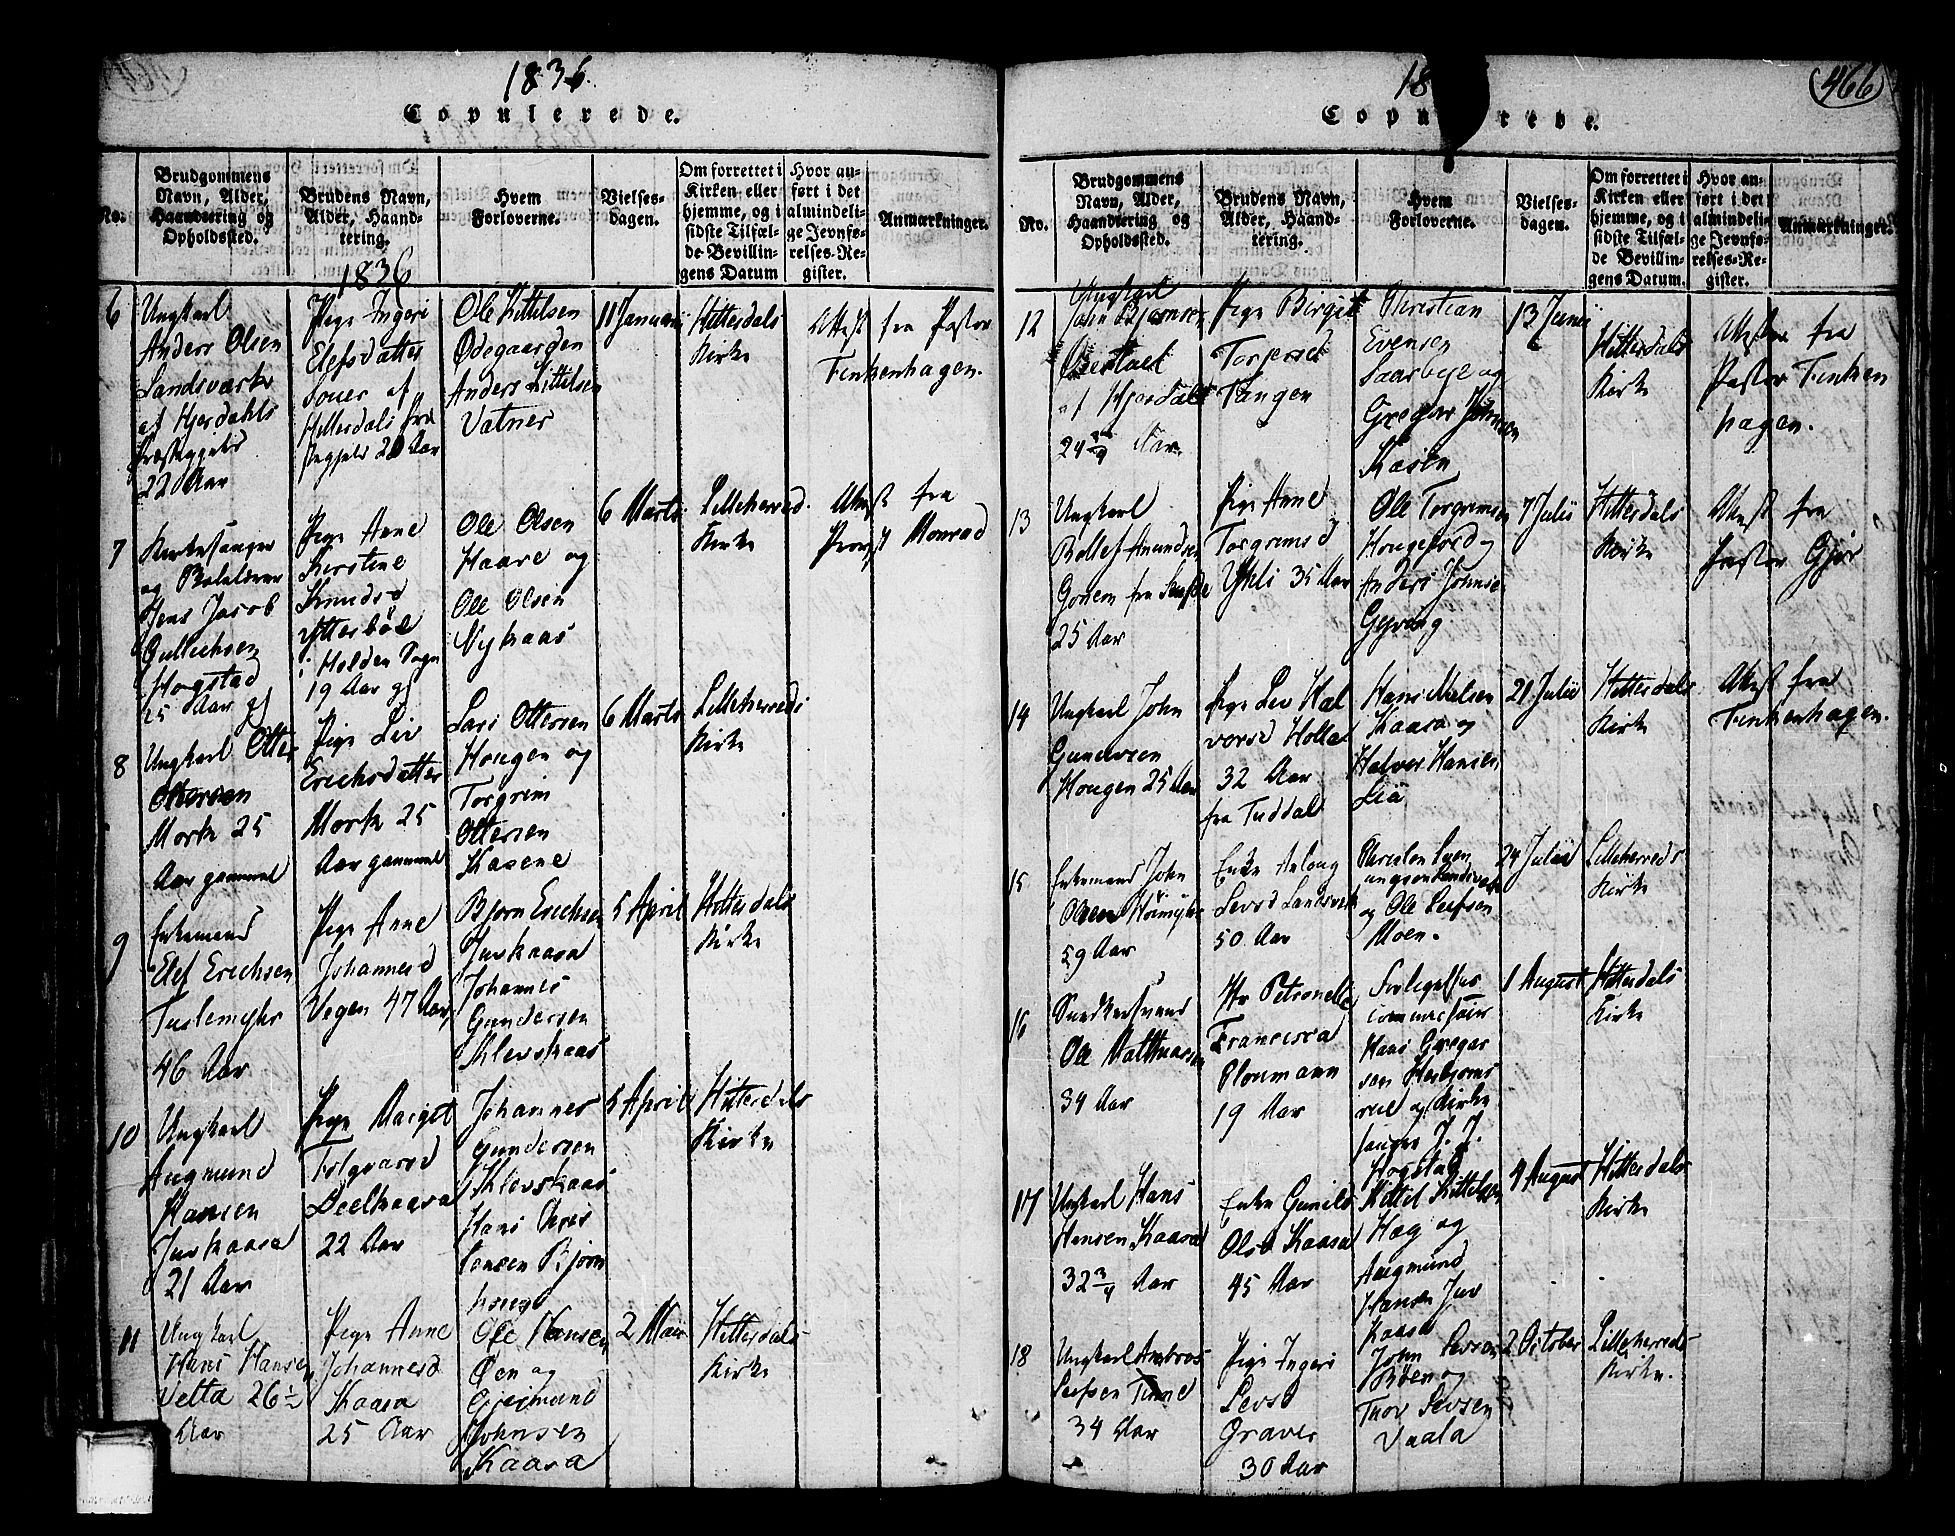 1836.
Copulerede.
No.
Brudgommens
Navn, Alder,
Haandtering og
Opholdssted.
Brudens Navn,
Alder, Haand-
tering.
Hvem
Forloverne.
Vielses-
dagen.
Om forrettet i
Kirken eller
hjemme, og i
sidste Tilfæl-
de Bevillin-
gens Datum
Hvor an-
ført i det
almindeli-
ge Jevnfø-
relses-Re-
gister.
Anmærkninger.
1836
6
Ungkarl
Anders Olsen
Landsværk
af Hjerdahls
Præstegjeld
22 Aar
Pige Ingeri
Elefsdatter
af
Hitterdals Præ
stegjeld 20 Aar
Ole Kittilsen
Ødegaarden
Anders Kittilsen
Vatner
11 Januarii
Hitterdals
Kirke
Attest fra Pastor
Tenkenhagen.
7
Kirkesanger
og
Jens Jacob
Gullichsen
Hogstad
25 Aar gl
Pige Anne
Kirstine
Knudsd
Ytterböe
i Holden Sogn
19 Aar gl
Ole Olsen
Haare og
Ole Olsen
Nykaas
6 Marts
Lilleherred
Kirke
Attest fra
Provst Monrad
8
Ungkarl Otter
Ottersen
Mork 25
Aar gammel
Pige Liv
Erichsdatter
Mork 25
Aar gammel
Lars Ottersen
Hougen og
Torgrim
Ottersen
Kasene
6 Marts
Lilleherreds
Kirke
9
Enkemand
Elef Erichsen
Tuslemyhr
46 Aar
Pige Anne
Johannesd
Vegen 47 Aar
Bjorn Erichsen
Juvkaasa
Johannes
Gundersen
Klevskaas
5 April
Hitterdals
Kirke
10
Ungkarl
Augmund
Hansen
Juvkaasa
21 Aar
Pige Marget
Folqvarsd
Deelkaasa
22 Aar
Johannes
Gundersen
Klevskaas
Hans Chris
tensen Bjorn
houge
5 April
Hitterdals
Kirke
11
Ungkarl
Hans Hansen
Vetta 26
Aar
Pige Anne
Johannesd
Kaasa
25 Aar
Ole Hansen
Øen og
Gjermund
Johnsen
Kaasa
2 Mai
Hitterdals
Kirke
466
18
Copulerede.
No.
Brudgommens
Navn, Alder,
Haandtering og
Opholdssted.
Brudens Navn,
Alder, Haand-
tering.
Hvem
Forloverne.
Vielses-
dagen.
Om forrettet i
Kirken eller
hjemme, og i
sidste Tilfæl-
de Bevillin-
gens Datum.
Hvor an-
ført i det
almindeli-
ge Jevnfø-
relses-Re-
gister.
Anmærkninger.
12
Ungkarl
John Bjornsen
af Hjerdal
24 Aar
Pige Birgit
Torjersd
Tangen
Christian
Evensen
Gregar Johnsen
Kasen
13 Junii
Hitterdals
Kirke
Attester fra
Pastor Tenken
hagen.
13
Ungkarl
Bollef Amundsen
fra
25 Aar
Pige Anne
Torgrimsd
Ykli 35 Aar
Ole Torgrimsen
Hougefos og
Anders Johnsen
7 Julii
Hitterdals
Kirke
Attest fra
Pastor Gjør
14
Ungkarl John
Gundersen
Hougen 25 Aar
Pige Liv Hal
vorsd Holta
32 Aar
fra Tuddal
Hans Nielsen
Kaasa og
Halvor Hansen
Lia
21 Julii
Hitterdals
Kirke
Attest fra
Tenkenhagen.
15
Enkemand John
Olsen
59 Aar
Enke Aslaug
Levsd Landsverk
50 Aar
og Ole Leefsen
Moen.
24 Julii
Lilleherreds
Kirke
16
Snedkersvend
Ole Matthiasen
34 Aar
Petronelle
Francisca
Ploumann
19 Aar
Forligelses
commissair
Hans Gregar
sen
og Kirke
sanger J. J.
Hogstad
1 August
Hitterdals
Kirke
17
Ungkarl Hans
Hansen Kaasa
32 3/4 Aar
Enke Gunild
Olsd Kaasa
45 Aar
Kittel Kittelsen
Hæg og
Augmund
Hansen Juv
kaasa
4 August
Hitterdals
Kirke
18
Ungkarl Ambros
Leefsen Tinne
34 Aar
Pige Ingeri
Levsd
Graver
30 Aar
John
og
Thov Levsen
Vaala
2 October
Lilleherreds
Kirke.